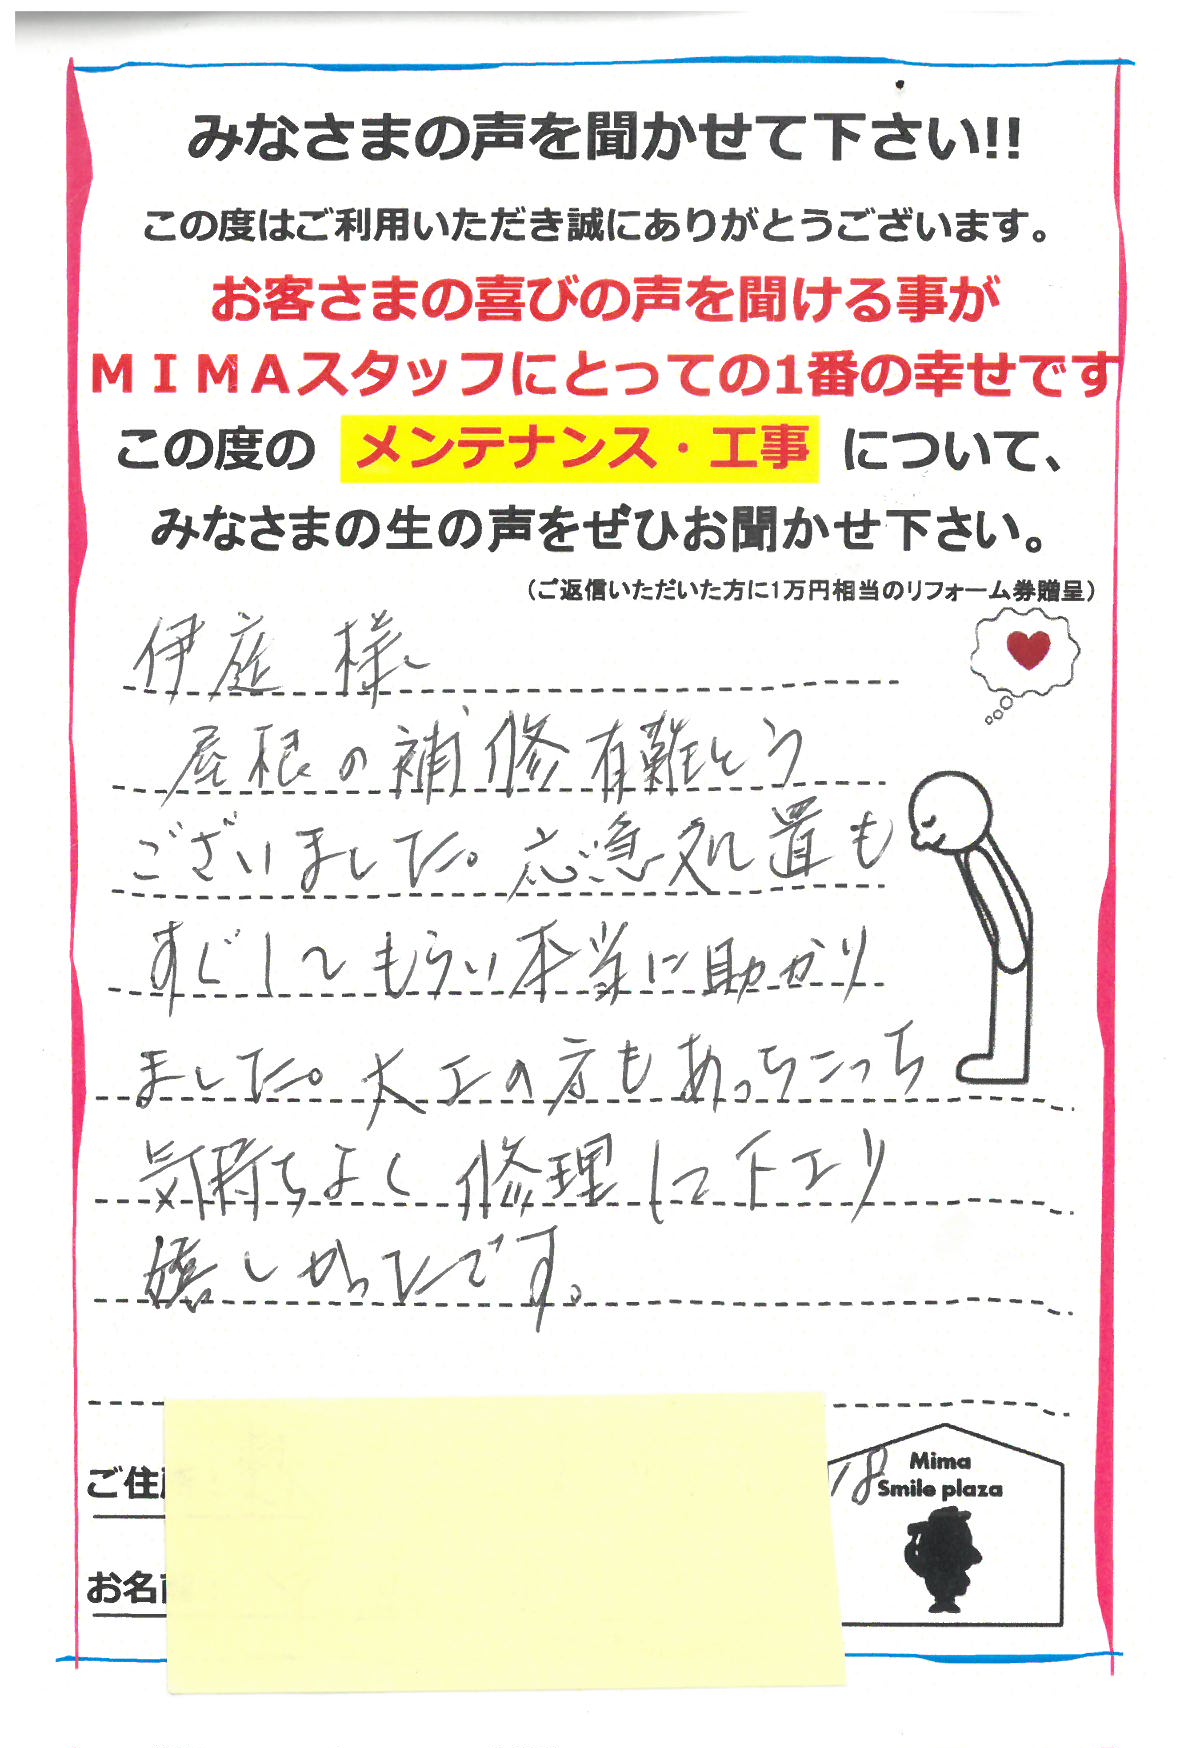 みなさまの声を聞かせて下さい!!
この度はご利用いただき誠にありがとうございます。
お客さまの喜びの声を聞ける事が
ＭＩＭＡスタッフにとっての1番の幸せです
この度の メンテナンス・工事 について、
みなさまの生の声をぜひお聞かせ下さい。
（ご返信いただいた方に1万円相当のリフォーム券贈呈）
伊庭 様
屋根の補修有難とう
ございました。応急処置も
すぐしてもらい本当に助かり
ました。大工の方もあっちこっち
気持ちよく修理して下エリ
嬉しかったです。
ご住
18
Mima
Smile plaza
お名